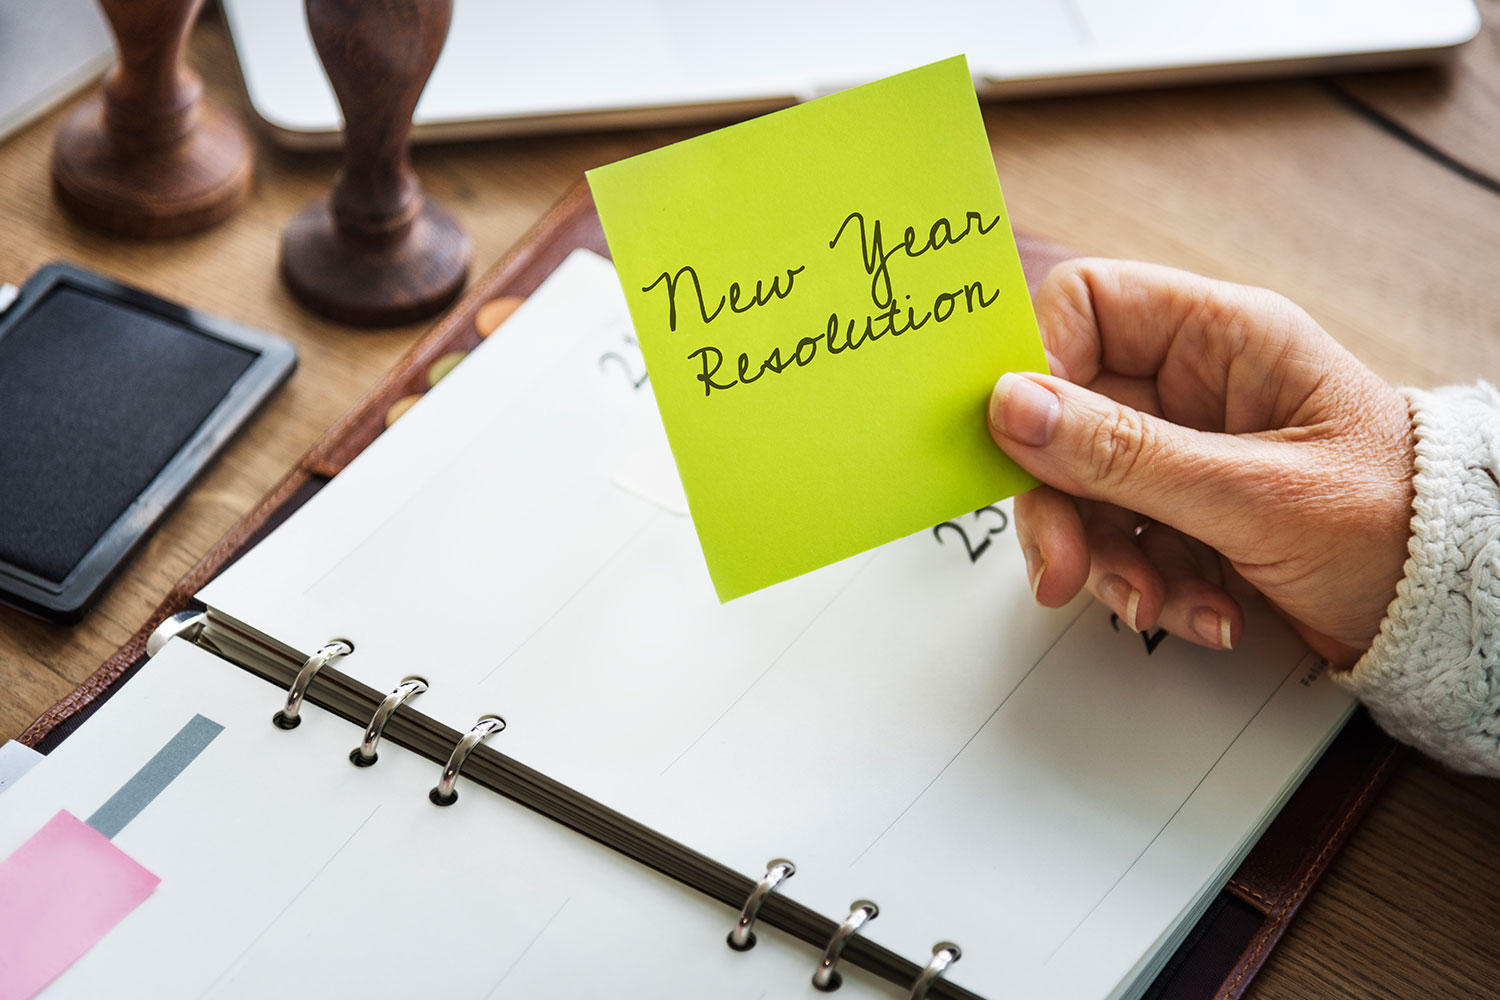 New Year
Resolution
23